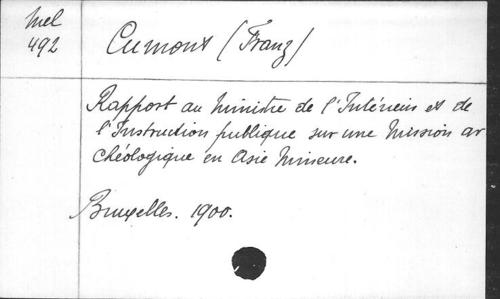 Mel
492
Cumont (Franz)
Rapport au Ministre de l'Intérieur et de
l'Instruction publique sur une Mission ar
chéologique en Asie Mineure.
Bruxelles. 1900.